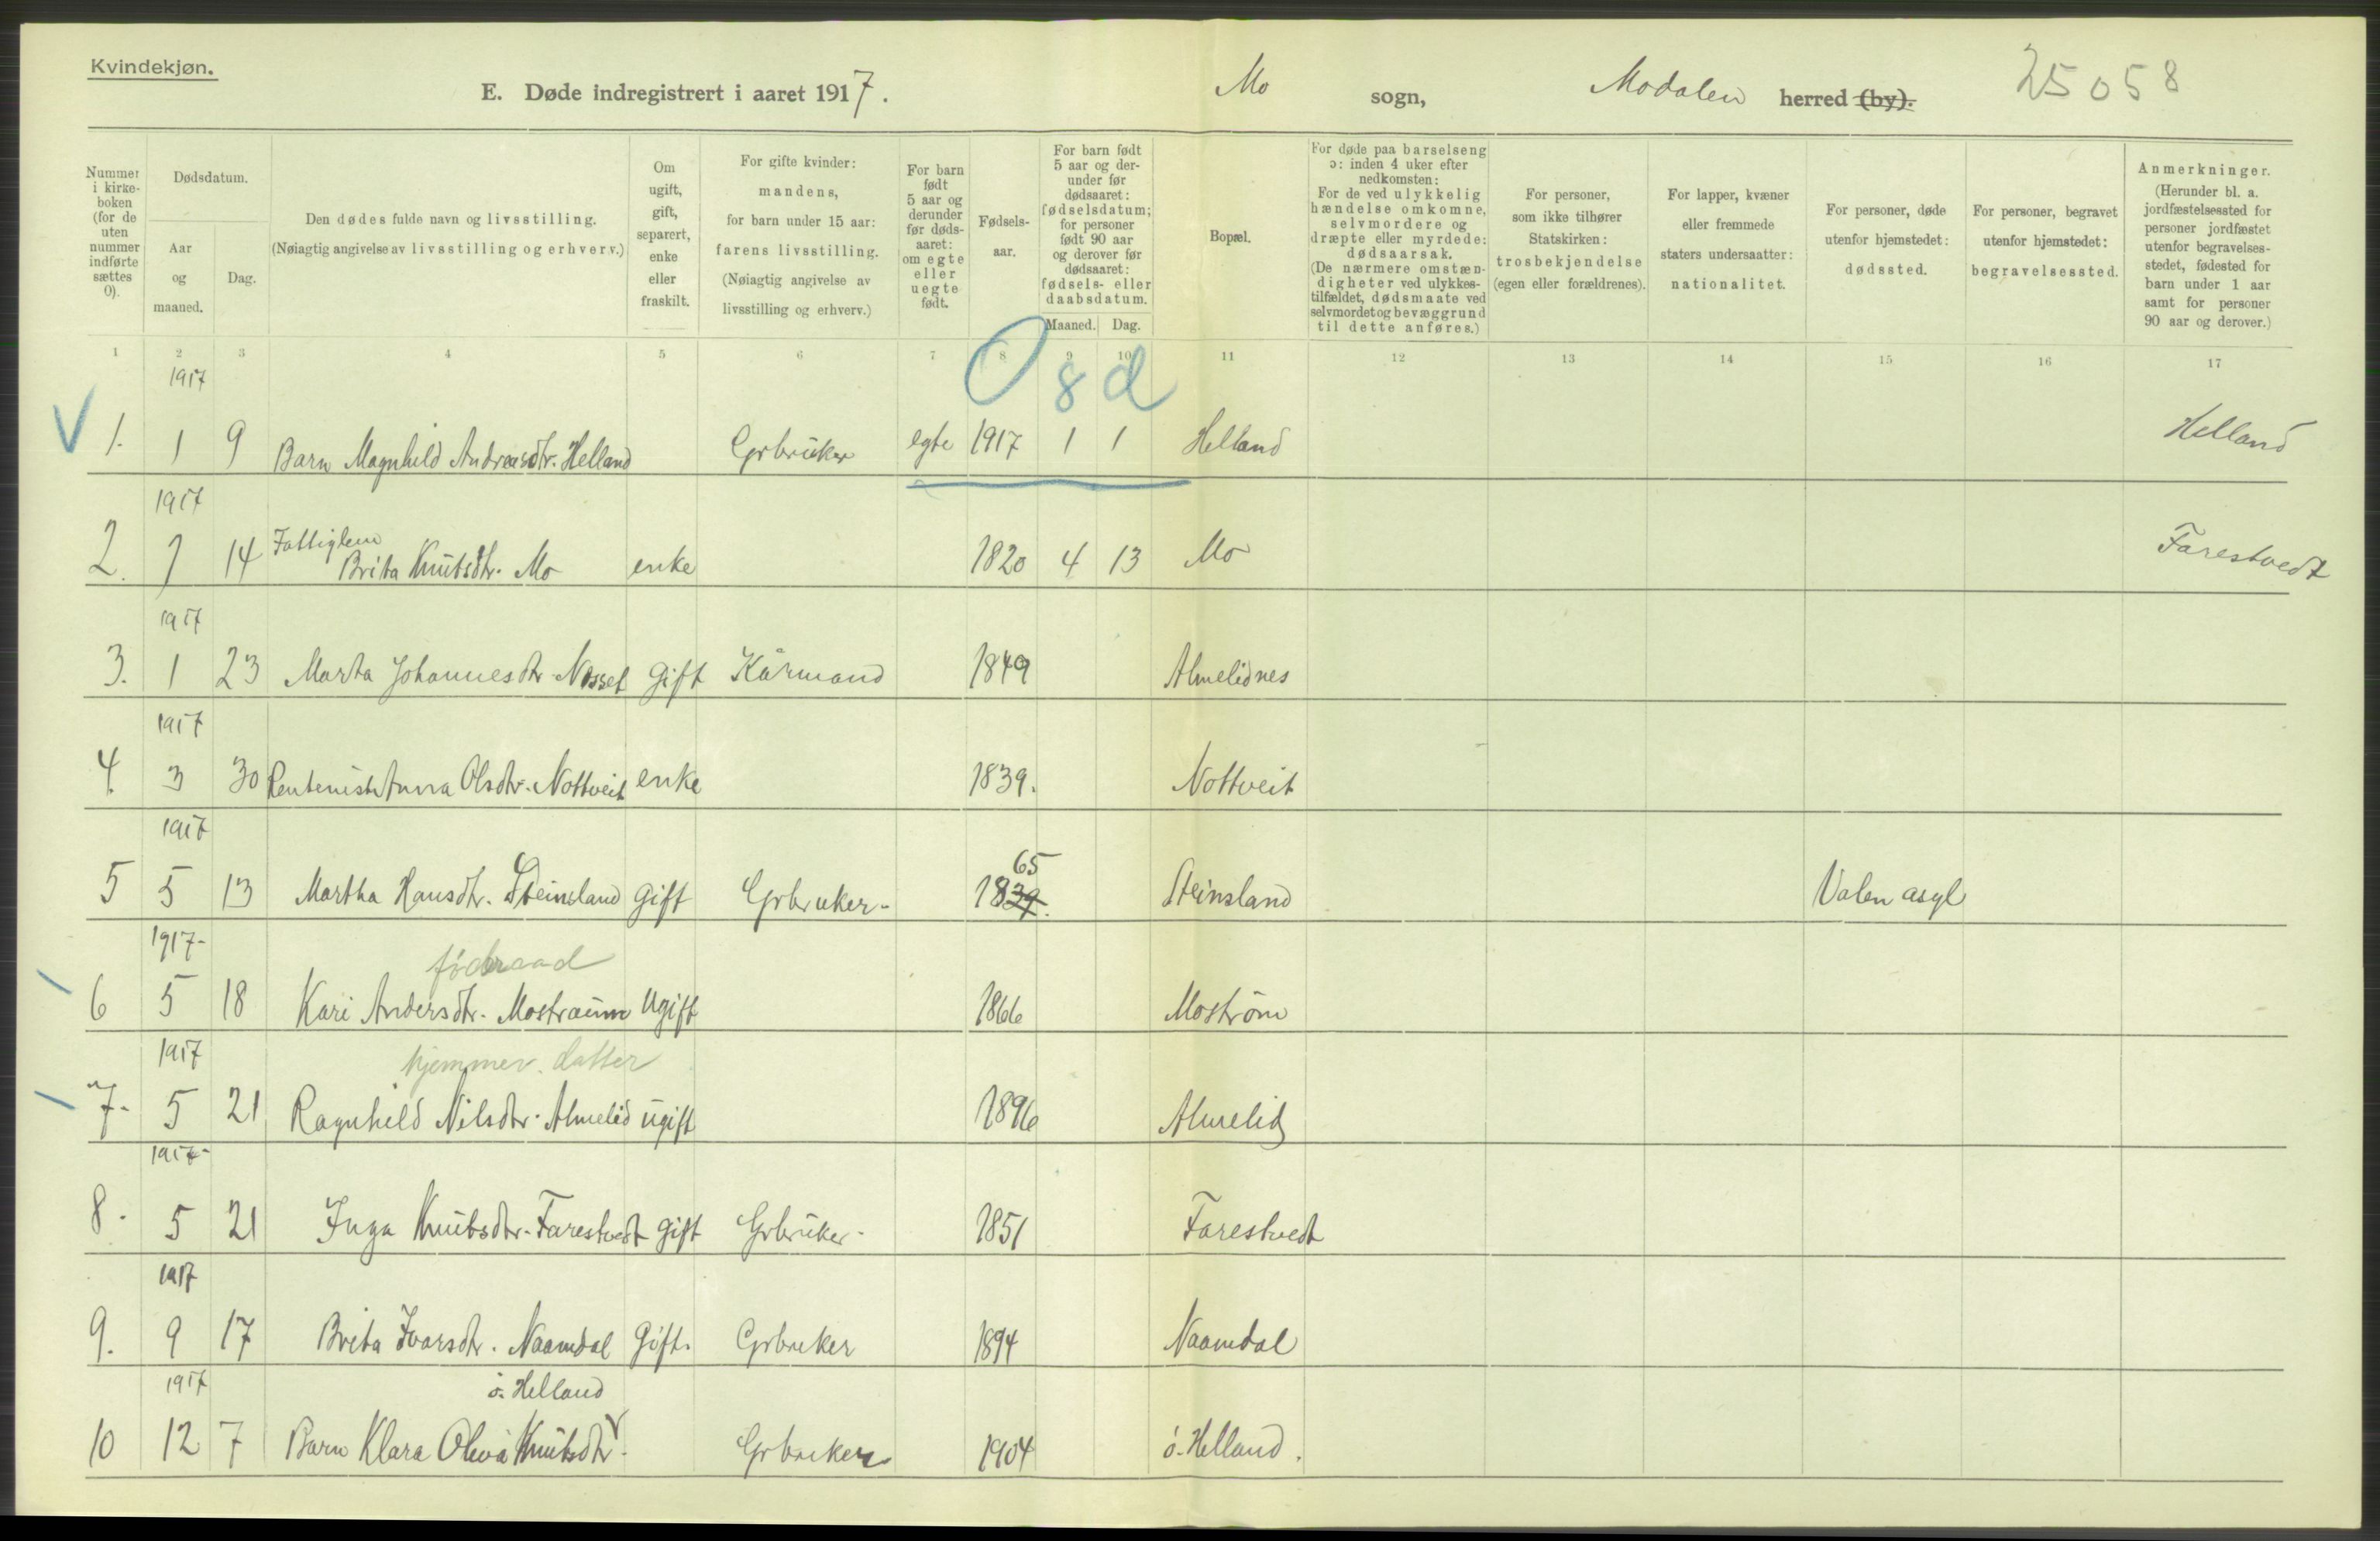 Kvindekjøn.
E. Døde indregistrert i aaret 1917. Mo sogn, Modalen herred (by). 25058
Nummer i kirkeboken (for de uten nummer indførte sættes 0).
Dødsdatum.
Aar og maaned.
Dag.
Den dødes fulde navn og livsstilling.
(Nøiagtig angivelse av livsstilling og erhverv.)
Om ugift, gift, separert, enke eller fraskilt.
For gifte kvinder: mandens, for barn under 15 aar: farens livsstilling. (Nøiagtig angivelse av livsstilling og erhverv.)
For barn født 5 aar og derunder før dødsaaret: om egte eller uegte født.
Fødselsaar.
For barn født 5 aar og derunder før dødsaaret: fødselsdatum; for personer født 90 aar og derover før dødsaaret: fødsels- eller daabsdatum.
Maaned. Dag.
Bopæl.
For døde paa barselseng ɔ: inden 4 uker efter nedkomsten: For de ved ulykkelig hændelse omkomne, selvmordere og dræpte eller myrdede: dødsaarsak. (De nærmere omstændigheter ved ulykkestilfældet, dødsmaate ved selvmordet og bevæggrund til dette anføres.)
For personer, som ikke tilhører Statskirken: trosbekjendelse (egen eller forældrenes).
For lapper, kvæner eller fremmede staters undersaatter: nationalitet.
For personer, døde utenfor hjemstedet: dødssted.
For personer, begravet utenfor hjemstedet: begravelsessted.
Anmerkninger. (Herunder bl. a. jordfæstelsessted for personer jordfæstet utenfor begravelsesstedet, fødested for barn under 1 aar samt for personer 90 aar og derover.)
1 2 3 4 5 6 7 8 9 10 11 12 13 14 15 16 17
1917 0 8 d
V 1. 1 9 Barn Magnhild Andreasdtr. Helland Grbruker egte 1917 1 1 Helland Helland
1917
Fattiglem
2. 7 14 Brita Knutsdtr. Mo enke 1820 4 13 Mo Farestvedt
1917
3. 1 23 Marta Johannesdtr. Nesset Gift Kårmand 1849 Almelidnes
1917
4. 3 30 Rentenist Anna Olsdtr. Nottveit enke 1839. Nottveit
1917 65
5 5 13 Martha Hansdtr. Steinsland Gift Grbruker. 1839. Steinsland Valen asyl
1917- føderaad
6 5 18 Kari Andersdtr. Mostraum Ugift 1866 Mostrøm
1917 hjemmev. datter
7- 5 21 Ragnhild Nilsdtr. Almelid ugift 1896 Almelid
1917-
8. 5 21 Inga Knutsdtr. Farestvedt gift Grbruker. 1851 Farestvedt
1917
9. 9 17 Brita Ivarsdtr. Naamdal Gift. Grbruker 1894 Naamdal
1917 ö. Helland
10 12 7 Barn Klara Oliva Knutsdtr. Grbruker 1904 ö. Helland.